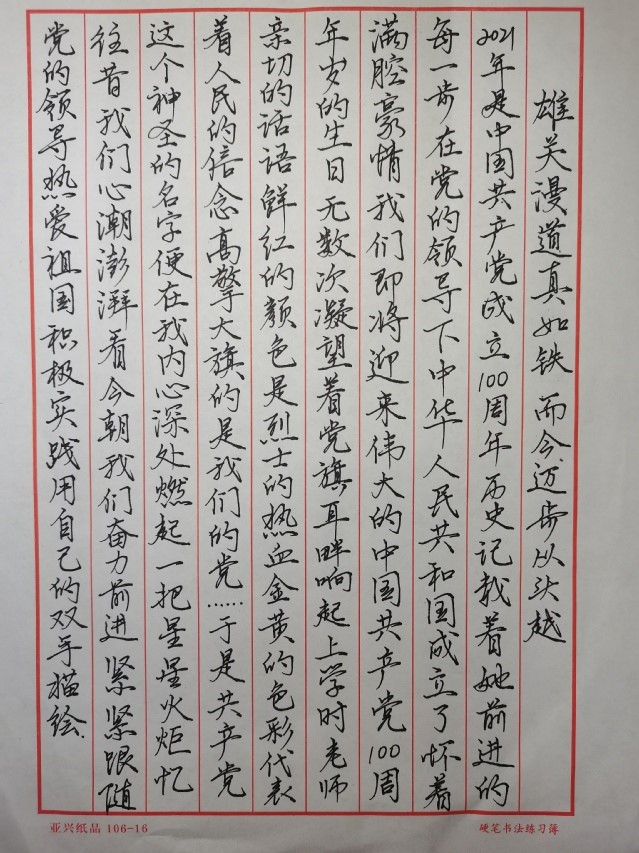 雄关漫道真如铁 而今迈步从头越
2021年是中国共产党成立100周年历史记载着她前进的
每一步 在党的领导下中华人民共和国成立了怀着
满腔豪情 我们即将迎来伟大的中国共产党100周
年岁的生日 无数次凝望着党旗耳畔响起上学时老师
亲切的话语鲜红的颜色是烈士的热血金黄的色彩代表
着人民的信念高擎大旗的是我们的党……于是共产党
这个神圣的名字便在我内心深处燃起一把星星火炬忆
往昔 我们心潮澎湃看今朝我们奋力前进 紧紧跟随
党的领导热爱祖国积极实践用自己的双手描绘.
亚兴纸品 106-16
硬笔书法练习薄